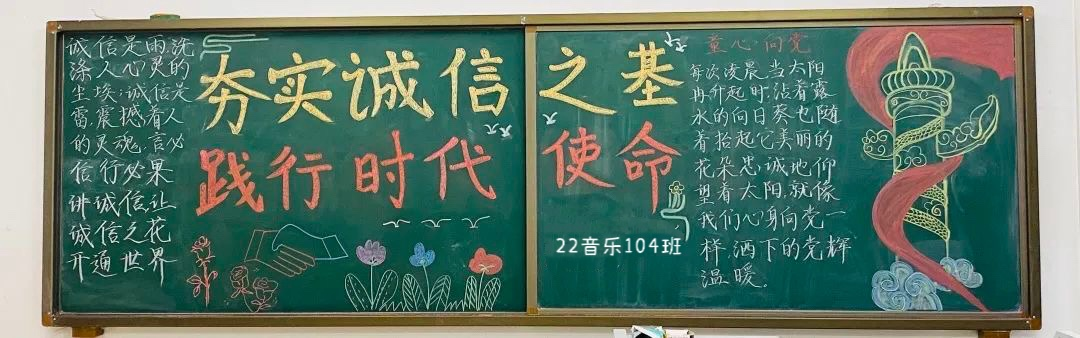 诚信是雨,洗
涤人心灵的
尘埃;诚信是
雷,震撼着人
的灵魂,言必
信行必果
讲诚信,让
诚信之花
开通世界
夯实诚信之基
践行时代使命
22音乐104班
童心·向党
每次凌晨,当太阳
冉升起时,沾着露
水的向日葵也随
着抬起它美丽的
花朵忠诚地仰
望着太阳,就像
我们心身向党一
样,洒下的党辉
温暖。